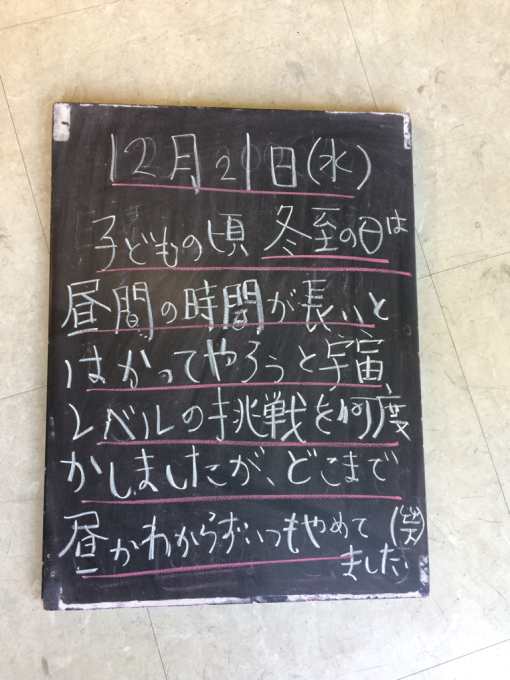 12月21日(水)
子どもの頃 冬至の日は
昼間の時間が長いと
はかってやろうと宇宙
レベルの挑戦を何度
かしましたが、どこまで
昼かわからずいつもやめて
ました(笑)